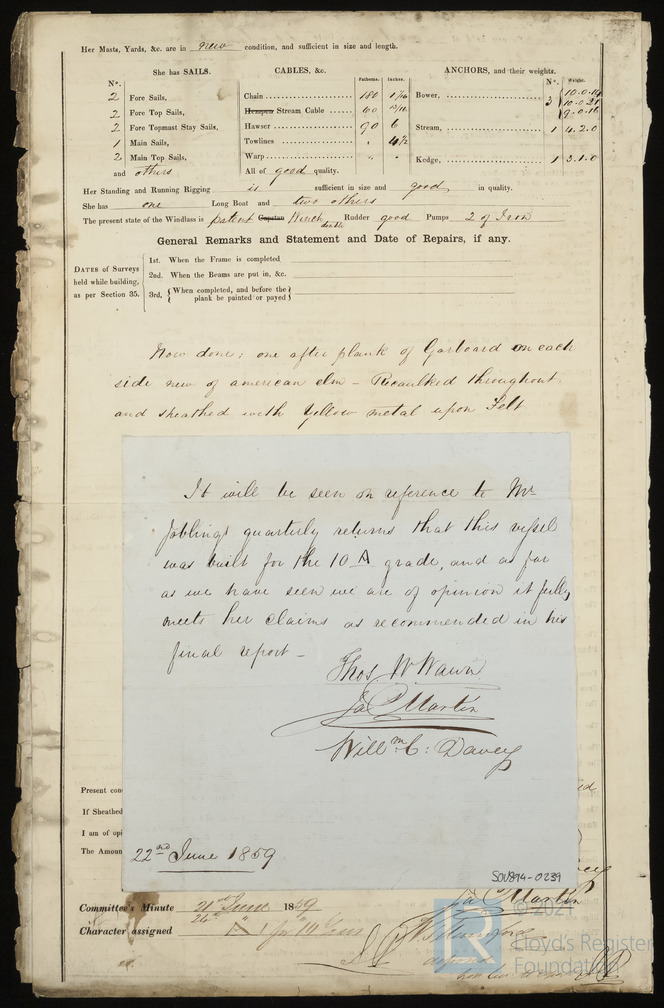 Her Masts, Yards, &c. are in new condition, and sufficient in size and length.
She has SAILS.
CABLES, &c.
Fathoms. Inches.
ANCHORS, and their weights.
Nº.
Nº. Weight.
2 Fore Sails,
2 Fore Top Sails,
2 Fore Topmast Stay Sails,
1 Main Sails,
2 Main Top Sails,
and others
Chain 180 1 1/16
Hempen Stream Cable 60
Hawser 90 6
Towlines " 4½
Warp " "
All of good quality.
Bower, 3 10.0.14
10.0.21
9.0.16
Stream, 1 4.2.0
Kedge, 1 3.1.0
Her Standing and Running Rigging is sufficient in size and good in quality.
She has one Long Boat and two others
The present state of the Windlass is patent Capstan Winch double Rudder good Pumps 2 of Iron
General Remarks and Statement and Date of Repairs, if any.
DATES of Surveys
held while building,
as per Section 35.
1st. When the Frame is completed
2nd. When the Beams are put in, &c.
3rd. { When completed, and before the
plank be painted or payed }
Now done; one after plank of Garboard on each
side new of american elm – Recaulked throughout,
and sheathed with Yellow metal upon Felt
It will be seen on reference to Mr
Joblings quarterly returns that this vessel
was built for the 10 A grade, and as far
as we have seen we are of opinion it fully
meets her claims as recommended in his
final report –
Thos W Wawn
Ja P Martin
Willm C: Davey
22nd June 1859
SOV894-0239
Present con
If Sheathed
I am of opi
The Amoun
Ja P Martin
Committee's Minute 21st June 1859
24th "
Character assigned
© 2021
Lloyd's Register
Foundation